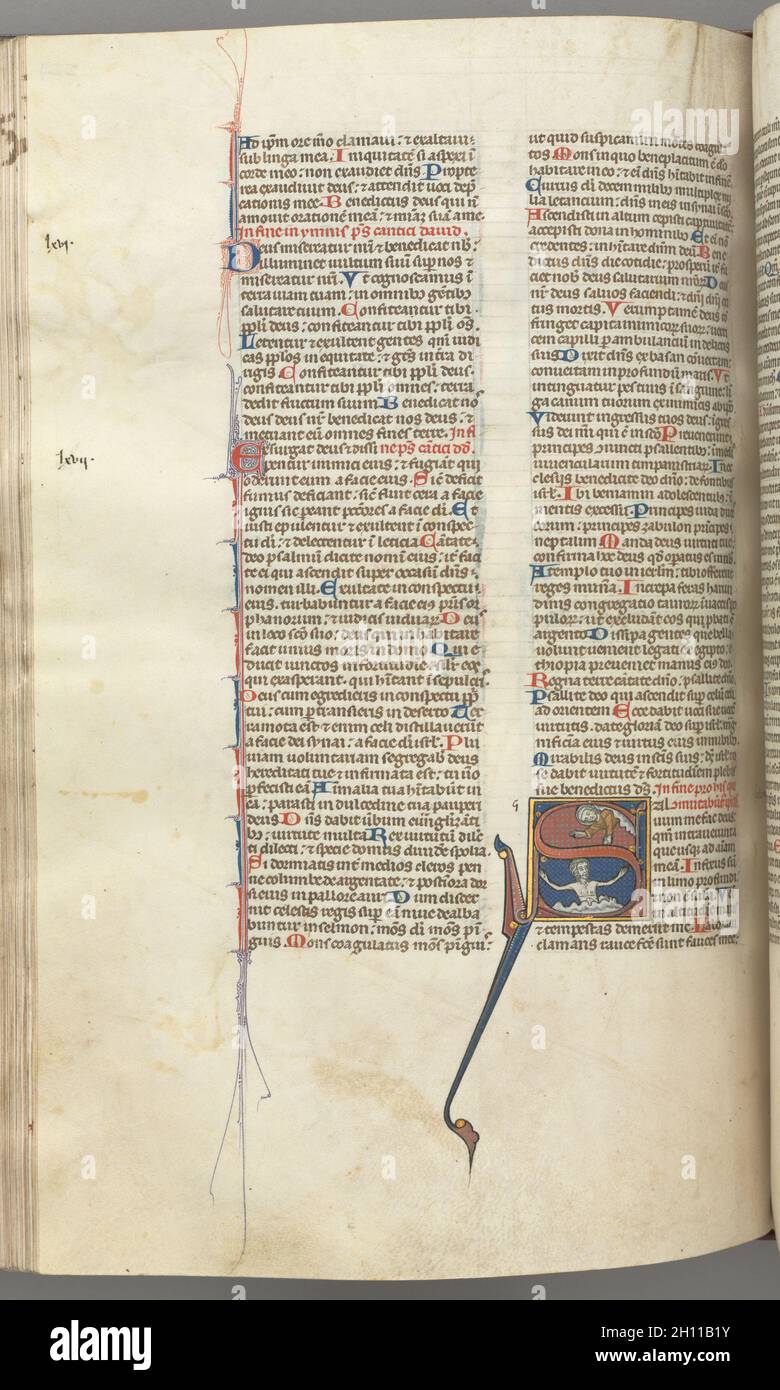 Ad ip̄m ore meo clamavi: ⁊ exaltavi
sub lingua mea. Iniquitatē si aspexi ī
corde meo: non exaudiet dn̄s. Propte
rea exaudivit deus: ⁊ attendit voci dep̄
cationis mee. Benedictus deus qui nō
amovit orationē meā: ⁊ mīam suā a me.
In fine in ymnis ps̄ cantici david.
lxvj.
Deus misereatur nr̄i ⁊ benedicat nob̄:
illuminet vultum suū sup nos ⁊
misereatur nr̄i. Ut cognoscamus ī
terra viam tuam: in omnibꝰ gētibꝰ
salutare tuum. Confiteantur tibi
ppl̄i deus: confiteantur tibi ppl̄i ōs.
Letentur ⁊ exultent gentes qm̄ iudi
cas ppl̄os in equitate: ⁊ gētes in tra di
rigis. Confiteantur tibi ppl̄i deus:
confiteantur tibi ppl̄i omnes: terra
dedit fructum suum. Benedicat nos
deus deus nr̄ benedicat nos deus: ⁊
metuant eū omnes fines terre. In fi
lxvij.
Exsurgat deus ⁊ dissi ne ps̄ cātici dd.
pentur inimici eius: ⁊ fugiant qui
oderunt eum a facie eius. Sic deficit
fumus deficiant: sic̄ fluit cera a facie
ignis sic pereant pctōres a facie di. Et
iusti epulentur ⁊ exultent ī conspec
tu di: ⁊ delectentur ī leticia. Cātate
deo psalmū dicite nomī eius: iter faci
te ei qui ascendit super occasū dn̄s
nomen illi. Exultate in conspectu
eius. turbabuntur a facie eius pris or
phanorum: ⁊ iudicis viduarz. Deus
in loco scō suo: deus qui inhabitare
facit unius moris in domo. Qui e
ducit vinctos in fortitudine: silr̄ eos
qui exasperant. qui hītant ī sepulcris.
Deus cum egredieris in conspectu ppl̄i
tui: cum ptransieris in deserto. Terra
mota est ⁊ enim celi distillaverūt
a facie dei synai: a facie di isrl̄. Plu
viam voluntariam segregabis deus
hereditati tue ⁊ infirmata est: tu v̄o
pfecisti eā. Animalia tua hītabūt in
ea: parasti in dulcedine tua pauperi
deus. Dn̄s dabit ūbum euāglizāti
bꝰ: virtute multa. Rex virtutū dilec
ti dilecti: ⁊ speciei domus dividere spolia.
Si dormiatis inter medios cleros pen
ne columbe deargentate: ⁊ posteriora dor
si eius in pallore auri. Dum discer
nit celestis reges sup eā nive dealba
buntur in selmon: mōs di mōs pin
guis. Mons coagulatus mōs pīguis:
ut quid suspicamini mōtes coagula
tos. Mons in quo beneplacitum ē deo
habitare in eo: ⁊ enī dn̄s hītabit in finē.
Currus di decem milibꝰ multiplex mi
lia letancium: dn̄s in eis in syna ī scō.
Ascendisti in altum cepisti captivitatē:
accepisti dona in hominibꝰ. Et eī nō
credentes: inhītare dn̄m deū. Bene
dictus dn̄s die cotidie: prosperū iter fa
ciet nob̄ deus salutarium nr̄orz. Deus
nr̄ deus salvos faciendi: ⁊ dni dni exi
tus mortis. Verumptamē deus con
fringet capita inimicorz suorz: verti
cem capilli perambulanciū in delictis
suis. Dixit dn̄s ex basan convertam:
convertam in profundū maris. Ut
intinguatur pes tuus ī sanguine: lin
gua canum tuorum ex inimicis ab ipō.
Viderunt ingressus tuos deus: ingres
sus dei mei qui ē in scō. Prevenerunt
principes coniuncti psallentibꝰ: in medio
iuvencularum timpanistriarz. In ec
clesijs benedicite deo dn̄o: de fontibus
isrl̄. Ibi beniamin adolescentulus: in
mentis excessu. Principes iuda duces
eorum: principes zabulon prīcipes
neptalim. Manda deus virtuti tue:
confirma hoc deus qd̄ operatus es in nob̄.
A templo tuo in ierlm̄: tibi offerent
reges munera. Increpa feras harun
dinis congregatio taurorz ī vaccis po
pulorz: ut excludant eos qui pbati sūt
argento. Dissipa gentes que bella
volunt: venient legati ex egipto: e
thiopia preveniet manus eius deo.
Regna terre cātate deo: psallite dn̄o.
Psallite deo qui ascendit sup celū celi:
ad orientem. Ecce dabit voci sue vocem
virtutis. date gloriam deo sup isrl̄: mag
nificētia eius ⁊ virtus eius in nubibꝰ.
Mirabilis deus in scīs suis: ds̄ isrl̄ ip̄
se dabit virtutē ⁊ fortitudinem plebis
sue benedictus ds̄. In fine pro his qui
Sal immutabūt dd
vum me fac deus:
qm̄ intraverunt aq̄
usq; ad aīam
meā. Infixus sū
in limo profundi:
⁊ tempestas demersit me. Laboravi
clamans rauce fc̄e sunt fauces mee:
alamy
Image ID: 2H11B1Y
www.alamy.com